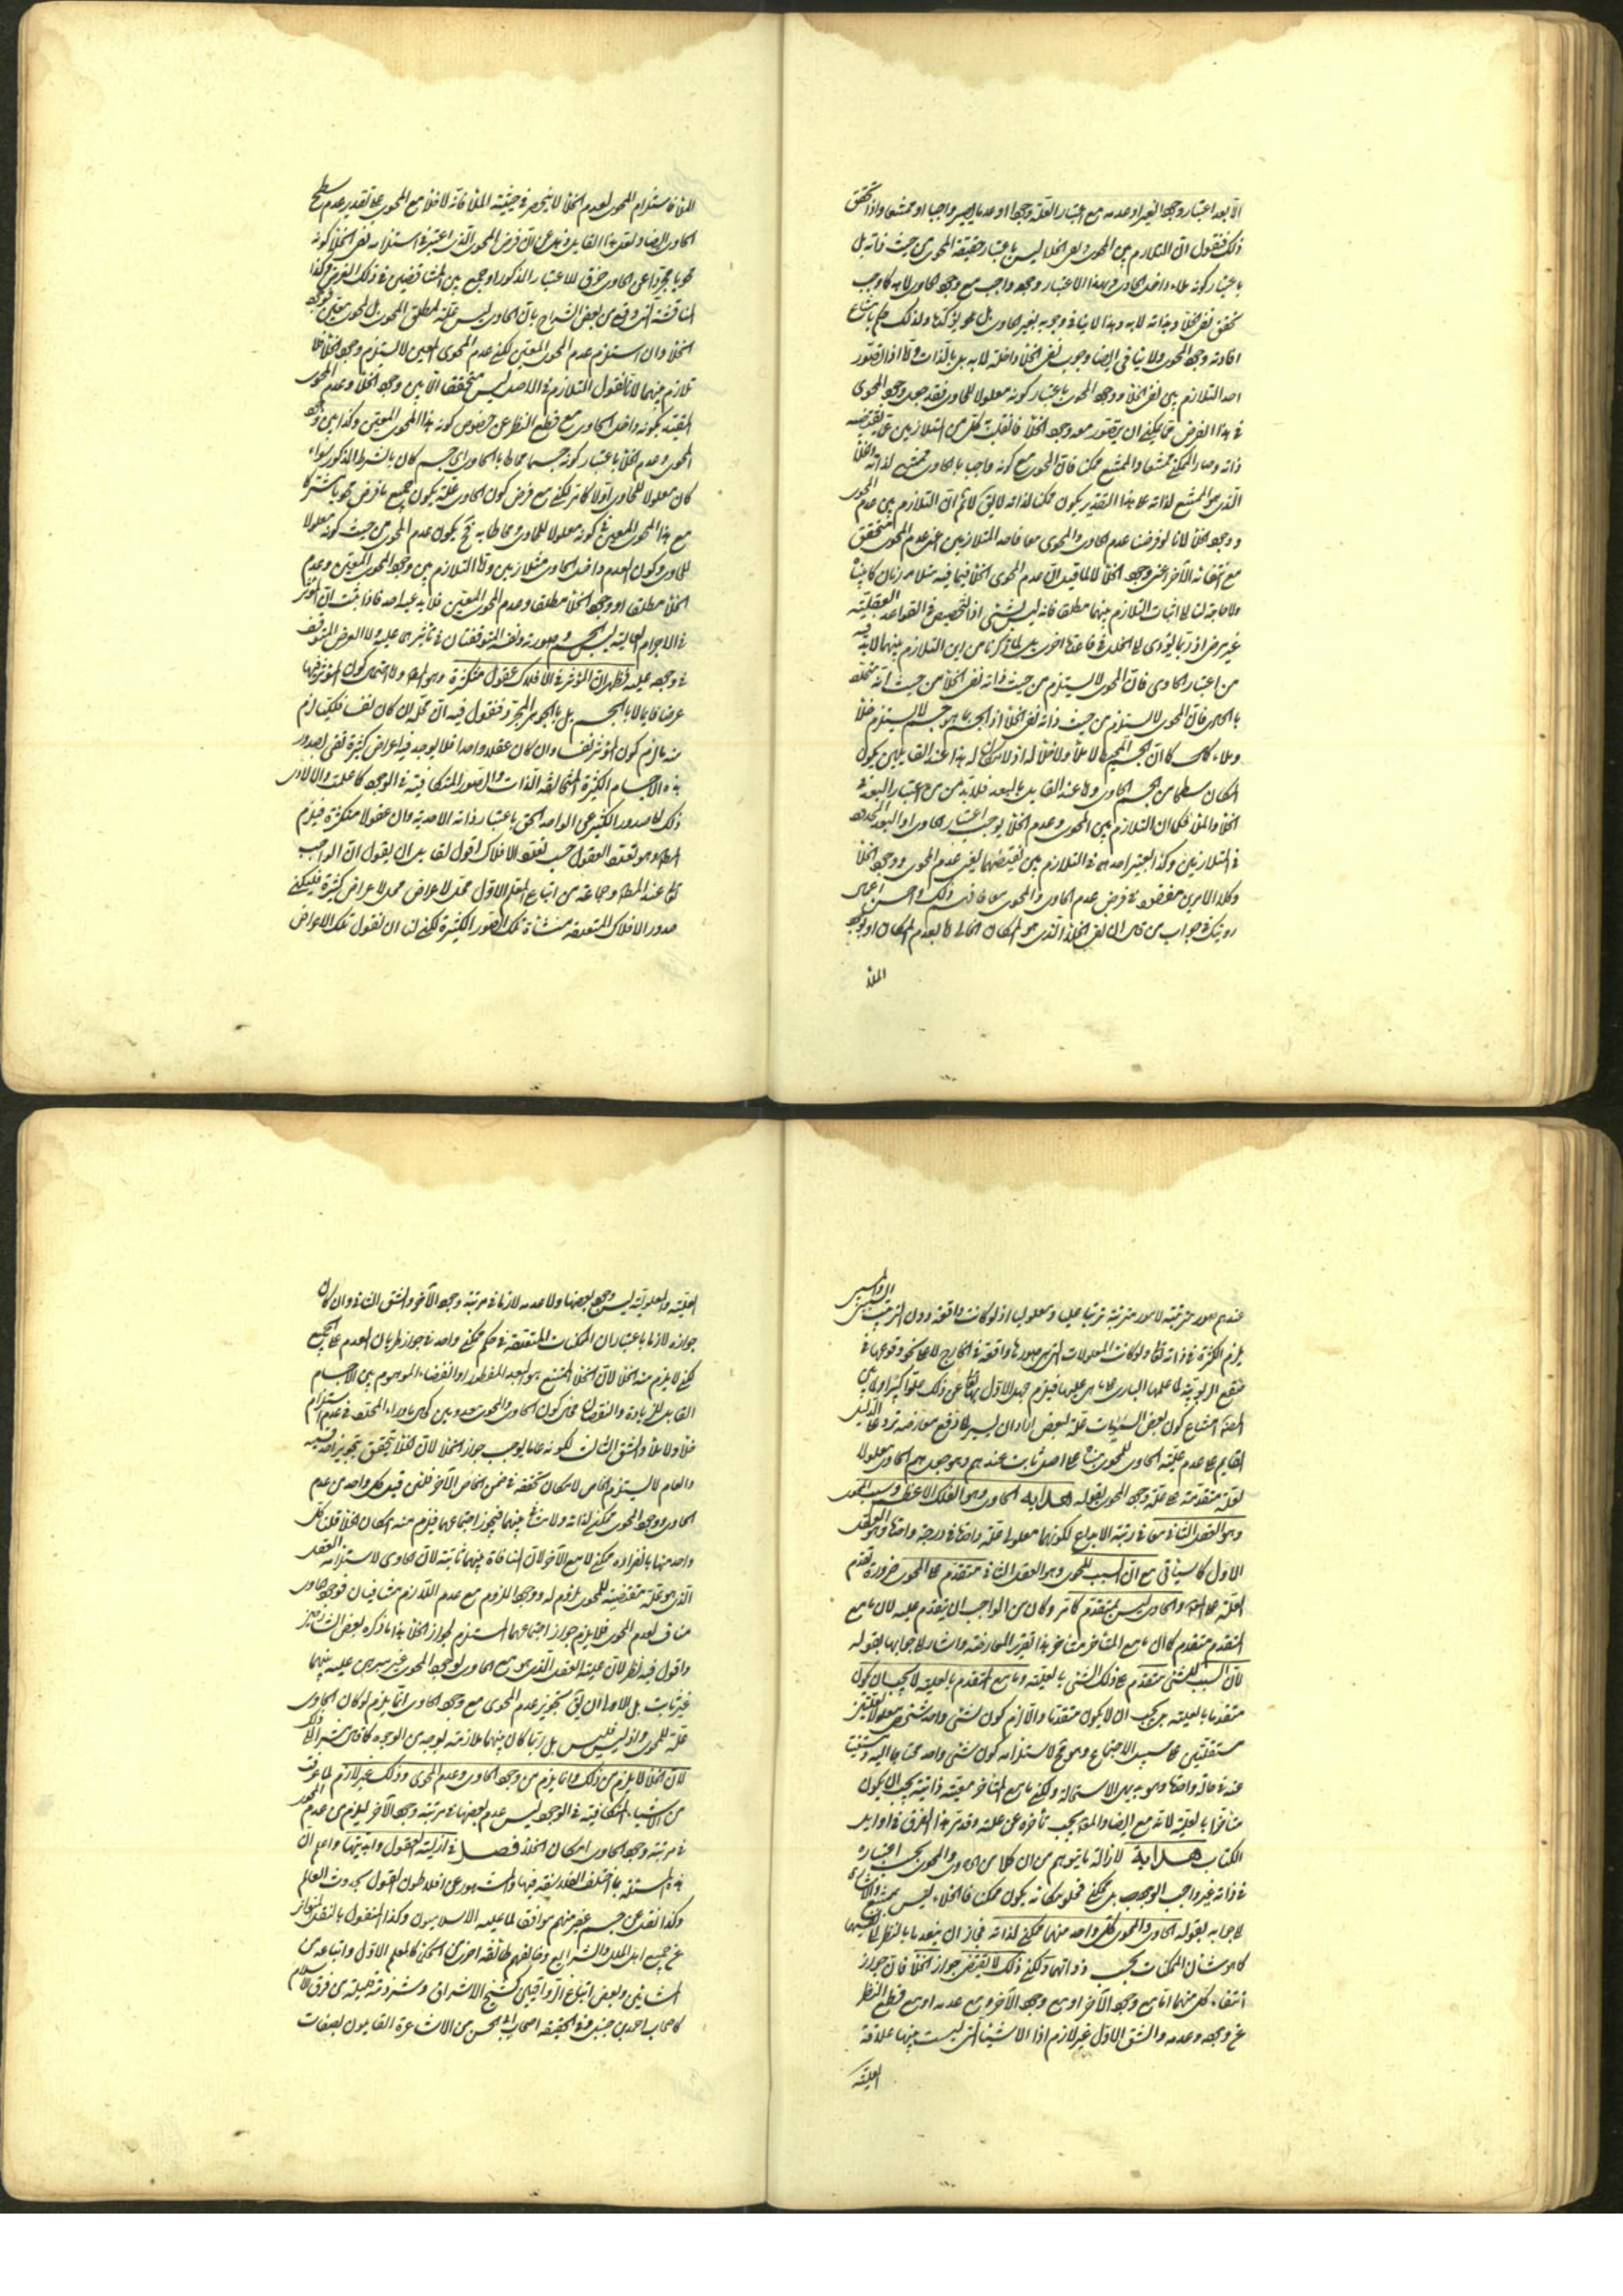 الا بعد اعتبار وجود الغير او عدمه مع اعتبار العلة وجودا او عدما يصير واجبا او ممتنعا واذا تحقق
ذلك فنقول ان التلازم بين المحوى ونفى الخلا ليس باعتبار حقيقة المحوى من حيث ذاته بل
باعتبار كونه ملاء داخل الحاوى وبهذا الاعتبار وجوده واجب مع وجود الحاوى لا به كما وجب
تحقق نفى الخلأ وبذاته لا به وهذا لا ينافى وجوبه بغير الحاوى بل هو يؤكدها ولذلك حكم بامتناع
افادته وجود المحوى ولا ينافى ايضا وجوب نفى الخلأ داخله لا به بل بالذات واما اذا تصور
احد التلازم بين نفى الخلأ ووجود المحوى باعتبار كونه معلولا للحاوى فقد جعل وجود المحوى
فى هذا الفرض مما يمكن ان يتصور معه وجود الخلأ فانقلب كل من المتلازمين عما يقتضيه
ذاته وصار الممكن ممتنعا والممتنع ممكنا فان المحوى مع كونه واجبا بالحاوى ممتنع لذاته والخلأ
الذى هو الممتنع لذاته على هذا التقدير يكون ممكنا لذاته لا يق لا نم ان التلازم بين عدم المحوى
ووجود الخلأ لانا لو فرضنا عدم الحاوى والمحوى معا فاحد المتلازمين اعنى عدم المحوى متحقق
مع انتفائه الآخر اعنى وجود الخلأ
ولا حاجة لنا الى اثبات التلازم بينهما مطلقا فانه ليس بشئ اذ التخصيص فى القواعد العقلية
غير مرضى اذ ربما يؤدى الى الخلل فى قاعدة اخرى بل لما ذكرنا من ان التلازم بينهما لا بد فيه
من اعتبار الحاوى فان المحوى لا يستلزم من حيث ذاته نفى الخلأ من حيث انه متعلق
بالحاوى فان المحوى لا يستلزم من حيث ذاته نفى الخلأ اذ الجسم بما هو جسم لا يستلزم خلأ
وملاء كما ان الجسم المحيط لا ملأ ولا خلأ له اذ لا مكان له هذا عند القايلين بكون
المكان سطحا من الجسم الحاوى واما عند القايل بالبعد فلا بد من اعتبار البعد فى
الخلأ والملأ فكما ان التلازم بين المحوى وعدم الخلأ يوجب اعتبار الحاوى او البعد
فى المتلازمين وكذا يعتبر احدهما فى التلازم بين نقيضيهما يعنى عدم المحوى ووجود الخلأ
وكلا الامرين مفقود فى فرض عدم الحاوى والمحوى معا فافهم ذلك واحسن اعمال
رويتك فى جواب من قال ان نفى الخلأ الذى هو المكان الخالى اما بعدم المكان او بوجود
الملأ
الملأ فاستلزام المحوى لعدم الخلأ لا ينحصر فى حيثية الملأ فانه لا خلأ مع المحوى على تقدير عدم سطح
الحاوى ايضا ولعل هذا القايل ذهل عن ان فرض المحوى الذى اعتبر فى استلزامه نفى الخلأ كونه
محويا مجردا عن الحاوى خرق للاعتبار المذكور او جمع بين المتناقضين فى ذلك الفرض وكذا
مناقشة التى وقع من بعض الشراح بان الحاوى ليس علة لمطلق المحوى بل لمحوى معين فوجود
الخلأ وان استلزم عدم المحوى المعين لكن عدم المحوى المعين لا يستلزم وجود الخلأ فلا
تلازم بينهما لانا نقول التلازم فى الاصل ليس متحققا الا بين وجود الخلأ وعدم المحوى
المقيد بكونه داخل الحاوى مع قطع النظر عن خصوص كونه هذا المحوى المعين وكذا بين وجود
المحوى وعدم الخلأ باعتبار كونه جسما محاطا بالحاوى اى جسم كان بالشرط المذكور سواء
كان معلولا للحاوى اولا كما مر لكن مع فرض كون الحاوى علة يكون جميع ما فرض محويا مشتركا
مع هذا المحوى المعين فى كونه معلولا للحاوى ومحاطا به فح يكون عدم المحوى من حيث كونه معلولا
للحاوى وكون العدم داخل الحاوى متلازمين واما التلازم بين وجود المحوى المعين وعدم
الخلأ مطلقا او وجود الخلأ مطلقا وعدم المحوى المعين فلا يدعيه احد فاذا ثبت ان المؤثر
فى الاجرام العالية ليس الجسم وصورته ونفسه المتوقفتان فى تأثيرهما عليه ولا العرض المتوقف
فى وجوده عليه فظهر ان المؤثر فى الافلاك عقول متكثرة وهو المط ولاحتمال كون المؤثر فيها
عرضا قايما لا بالجسم بل بالجوهر المجرد فنقول فيه ان محله ان كان نفسا فكيف يلزم
منه ما لزم كون المؤثر نفسا وان كان عقلا واحدا فلا يوجد فيه اعراض كثيرة تفى لصدور
هذه الاجسام الكثيرة المتخالفة الذات والصور المتكافية فى الوجود كما علمت والا لادى
ذلك الى صدور الكثير عن الواحد الحق باعتبار ذاته الاحدية وان عقولا متكثرة فيلزم
المط وهو تعدد العقول حسب تعدد الافلاك اقول لقايل ان يقول ان الواجب
تعالى عند المص وجماعة من اتباع المعلم الاول محل لاعراض كثيرة فليكن
صدور الافلاك المتعددة منشأه تلك الصور الكثيرة لكن لنا ان نقول تلك الاعراض
عندهم صور مترتبة لامور مترتبة ترتبا عليا ومعلوليا اذ لو كانت واقعة دون الترتيب السببى والمسببى
يلزم الكثرة فى ذاته تعالى ولو كانت المعلولات التى هى صورها واقعة فى الخارج لا على نحو وقوعها فى
صقع الربوبية لما علمها البارى على ما هى عليها فيلزم جهل الاول تعالى عن ذلك علوا كبيرا ولما بين
المص امتناع كون بعض السماويات علة لبعض اراد ان يشير الى دفع معارضة ترد على الدليل
القايم على عدم علية الحاوى للمحوى بناء على اصل ثابت عندهم وهو جعلهم الحاوى معلولا
لعلة متقدمة على علة وجود المحوى بقوله هداية الحاوى وهو الفلك الاعظم وسبب المحوى
وهو العقل الثانى معا فى رتبة الابداع لكونهما معلولا علة واحدة فى درجة واحدة وهو العقل
الاول كما سيأتى مع ان السبب للمحوى وهو العقل الثانى متقدم على المحوى ضرورة تقدم
العلة على المع والحاوى ليس بمتقدم كما مر وكان من الواجب ان يتقدم عليه لان ما مع
المتقدم متقدم كما ان ما مع المتأخر متأخر هذا تقرير المعارضة واشار الى جوابها بقوله
لان السبب للشئ متقدم على ذلك الشئ بالعلية وما مع المتقدم بالعلية لا يجب ان يكون
متقدما بالعلية بل يجب ان لا يكون متقدما والا لزم كون شئ واحد شخصى معلولا لعلتين
مستقلتين على سبيل الاجتماع وهو مح لاستلزامه كون شئ واحد محتاجا اليه ومستغنيا
عنه فى حالة واحدة وهو بديهى الاستحالة ولكن ما مع المتأخر معية ذاتية يجب ان يكون
متأخرا بالعلية لانه مع ايضا والمع يجب تأخره عن علته وقد مر هذا الفرق فى اوايل
الكتاب هداية لازالة ما يتوهم من ان كلا من الحاوى والمحوى يجب اعتباره
فى ذاته غير واجب الوجود بل ممكن فخلو مكانه يكون ممكنا فالخلاء ليس بممتنع والاشارة
الى جوابه بقوله الحاوى والمحوى كل واحد منهما ممكن لذاته فجاز ان ينعدما بالنظر الى نفسيهما
كما هو شأن الممكنات بحسب ذواتها ولكن ذلك لا يقتضى جواز الخلأ فان جواز
انتفاء كل منهما اما مع وجود الآخر او مع وجود الآخر ومع عدمه او مع قطع النظر
عن وجوده وعدمه والشق الاول غير لازم اذ الاشياء التى ليست بينها علاقة
العلية
العلية والمعلولية ليس وجود بعضها ولا عدمه لازما فى مرتبة وجود الآخر والشق الثانى وان كان
جوازه لازما باعتبار ان الممكنات المتفقة فى حكم ممكن واحد فى جواز طريان العدم على الجميع
لكن لا يلزم منه الخلأ لان الخلأ الممتنع هو البعد المفطور او الفضاء الموهوم بين الاجسام
القابل للزيادة والنقصان فحال كون الحاوى والمحوى معدومين كحال ما وراء المحدد فى عدم استلزام
خلأ ولا ملأ والشق الثالث لكونه عاما لا يوجب جواز الخلأ لان الخلأ يتحقق بتجويز احد قسميه
والعام لا يستلزم الخاص لامكان تحققه فى ضمن الخاص الآخر فلئن قيل كل واحد من عدم
الحاوى ووجود المحوى ممكن لذاته ولا منافاة بينهما فيجوز اجتماعهما فيلزم منه امكان الخلأ قلنا كل
واحد منهما بانفراده ممكن لا مع الآخر لان المنافاة بينهما ثابتة لان الحاوى لاستلزامه العقل
الذى هو علة مقتضية للمحوى لازم له ووجود الملزوم مع عدم اللازم متنافيان فوجود الحاوى
مناف لعدم المحوى فلا يلزم جواز اجتماعهما المستلزم لجواز الخلأ هذا ما ذكره بعض الشارحين
واقول فيه نظر لان علية العقل الذى هو مع الحاوى لوجود المحوى غير مبرهن عليه بينهما
غير ثابت بل الاولى ان يق تجويز عدم المحوى مع وجود الحاوى انما يلزم لو كان الحاوى
علة للمحوى واذ ليس فليس بل ربما كان بينهما ملازمة بوجه من الوجوه كما قال مشيرا الى ذلك
لان الخلأ لا يلزم من ذلك وانما يلزم من وجود الحاوى وعدم المحوى وذلك غير لازم لما عرفت
من ان الاشياء المتكافية فى الوجود ليس عدم بعضها فى مرتبة وجود الآخر ليلزم من عدم المحوى
فى مرتبة وجود الحاوى امكان الخلأ فصل فى ازلية العقول وابديتها واعلم ان
هذه المسئلة مما اختلف الفلاسفة فيها والمشهور عن افلاطون القول بحدوث العالم
وكذا نقل عن جم غفير منهم موافقا لما عليه الاسلاميون وكذا المنقول بالنقل المتواتر
عن جميع اهل الملل والشرايع وخالفهم طائفة اخرى من الحكماء كالمعلم الاول واتباعه من
المشائين وبعض اتباع الرواقيين كشيخ الاشراق وشرذمة قليلة من فرق الاسلام
كاصحاب احمد بن حنبل وفى الحقيقة اصحاب ابى الحسن من الاشاعرة القايلون بصفات